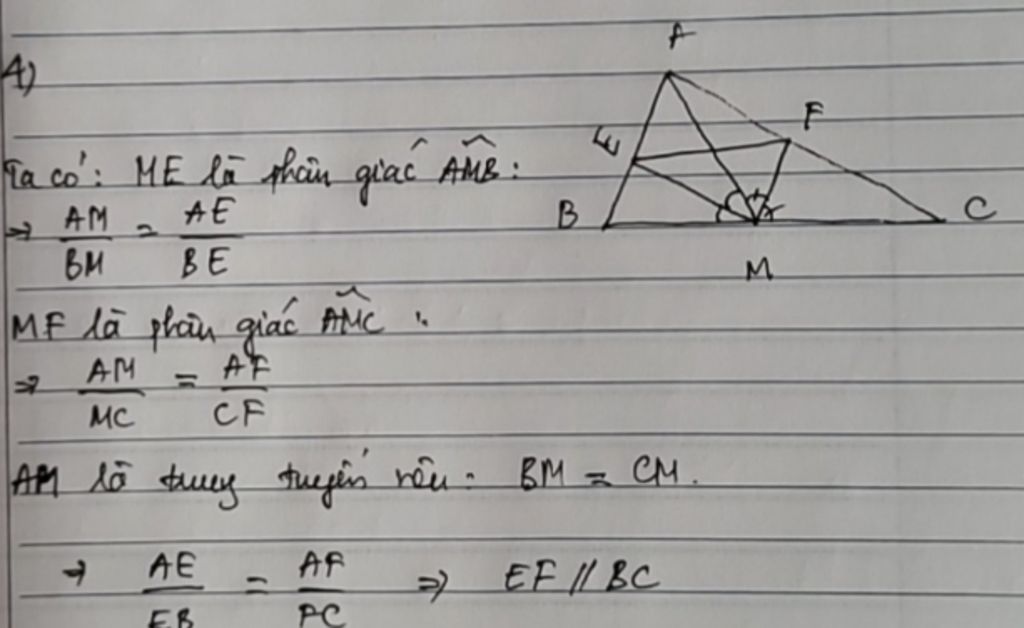 4)
A
F
E
B
C
M
Ta có: ME là phân giác AMB^:
⇒ AM/BM = AE/BE
MF là phân giác AMC^ :
⇒ AM/MC = AF/CF
AM là trung tuyến nên: BM = CM.
→ AE/EB = AF/FC ⇒ EF // BC